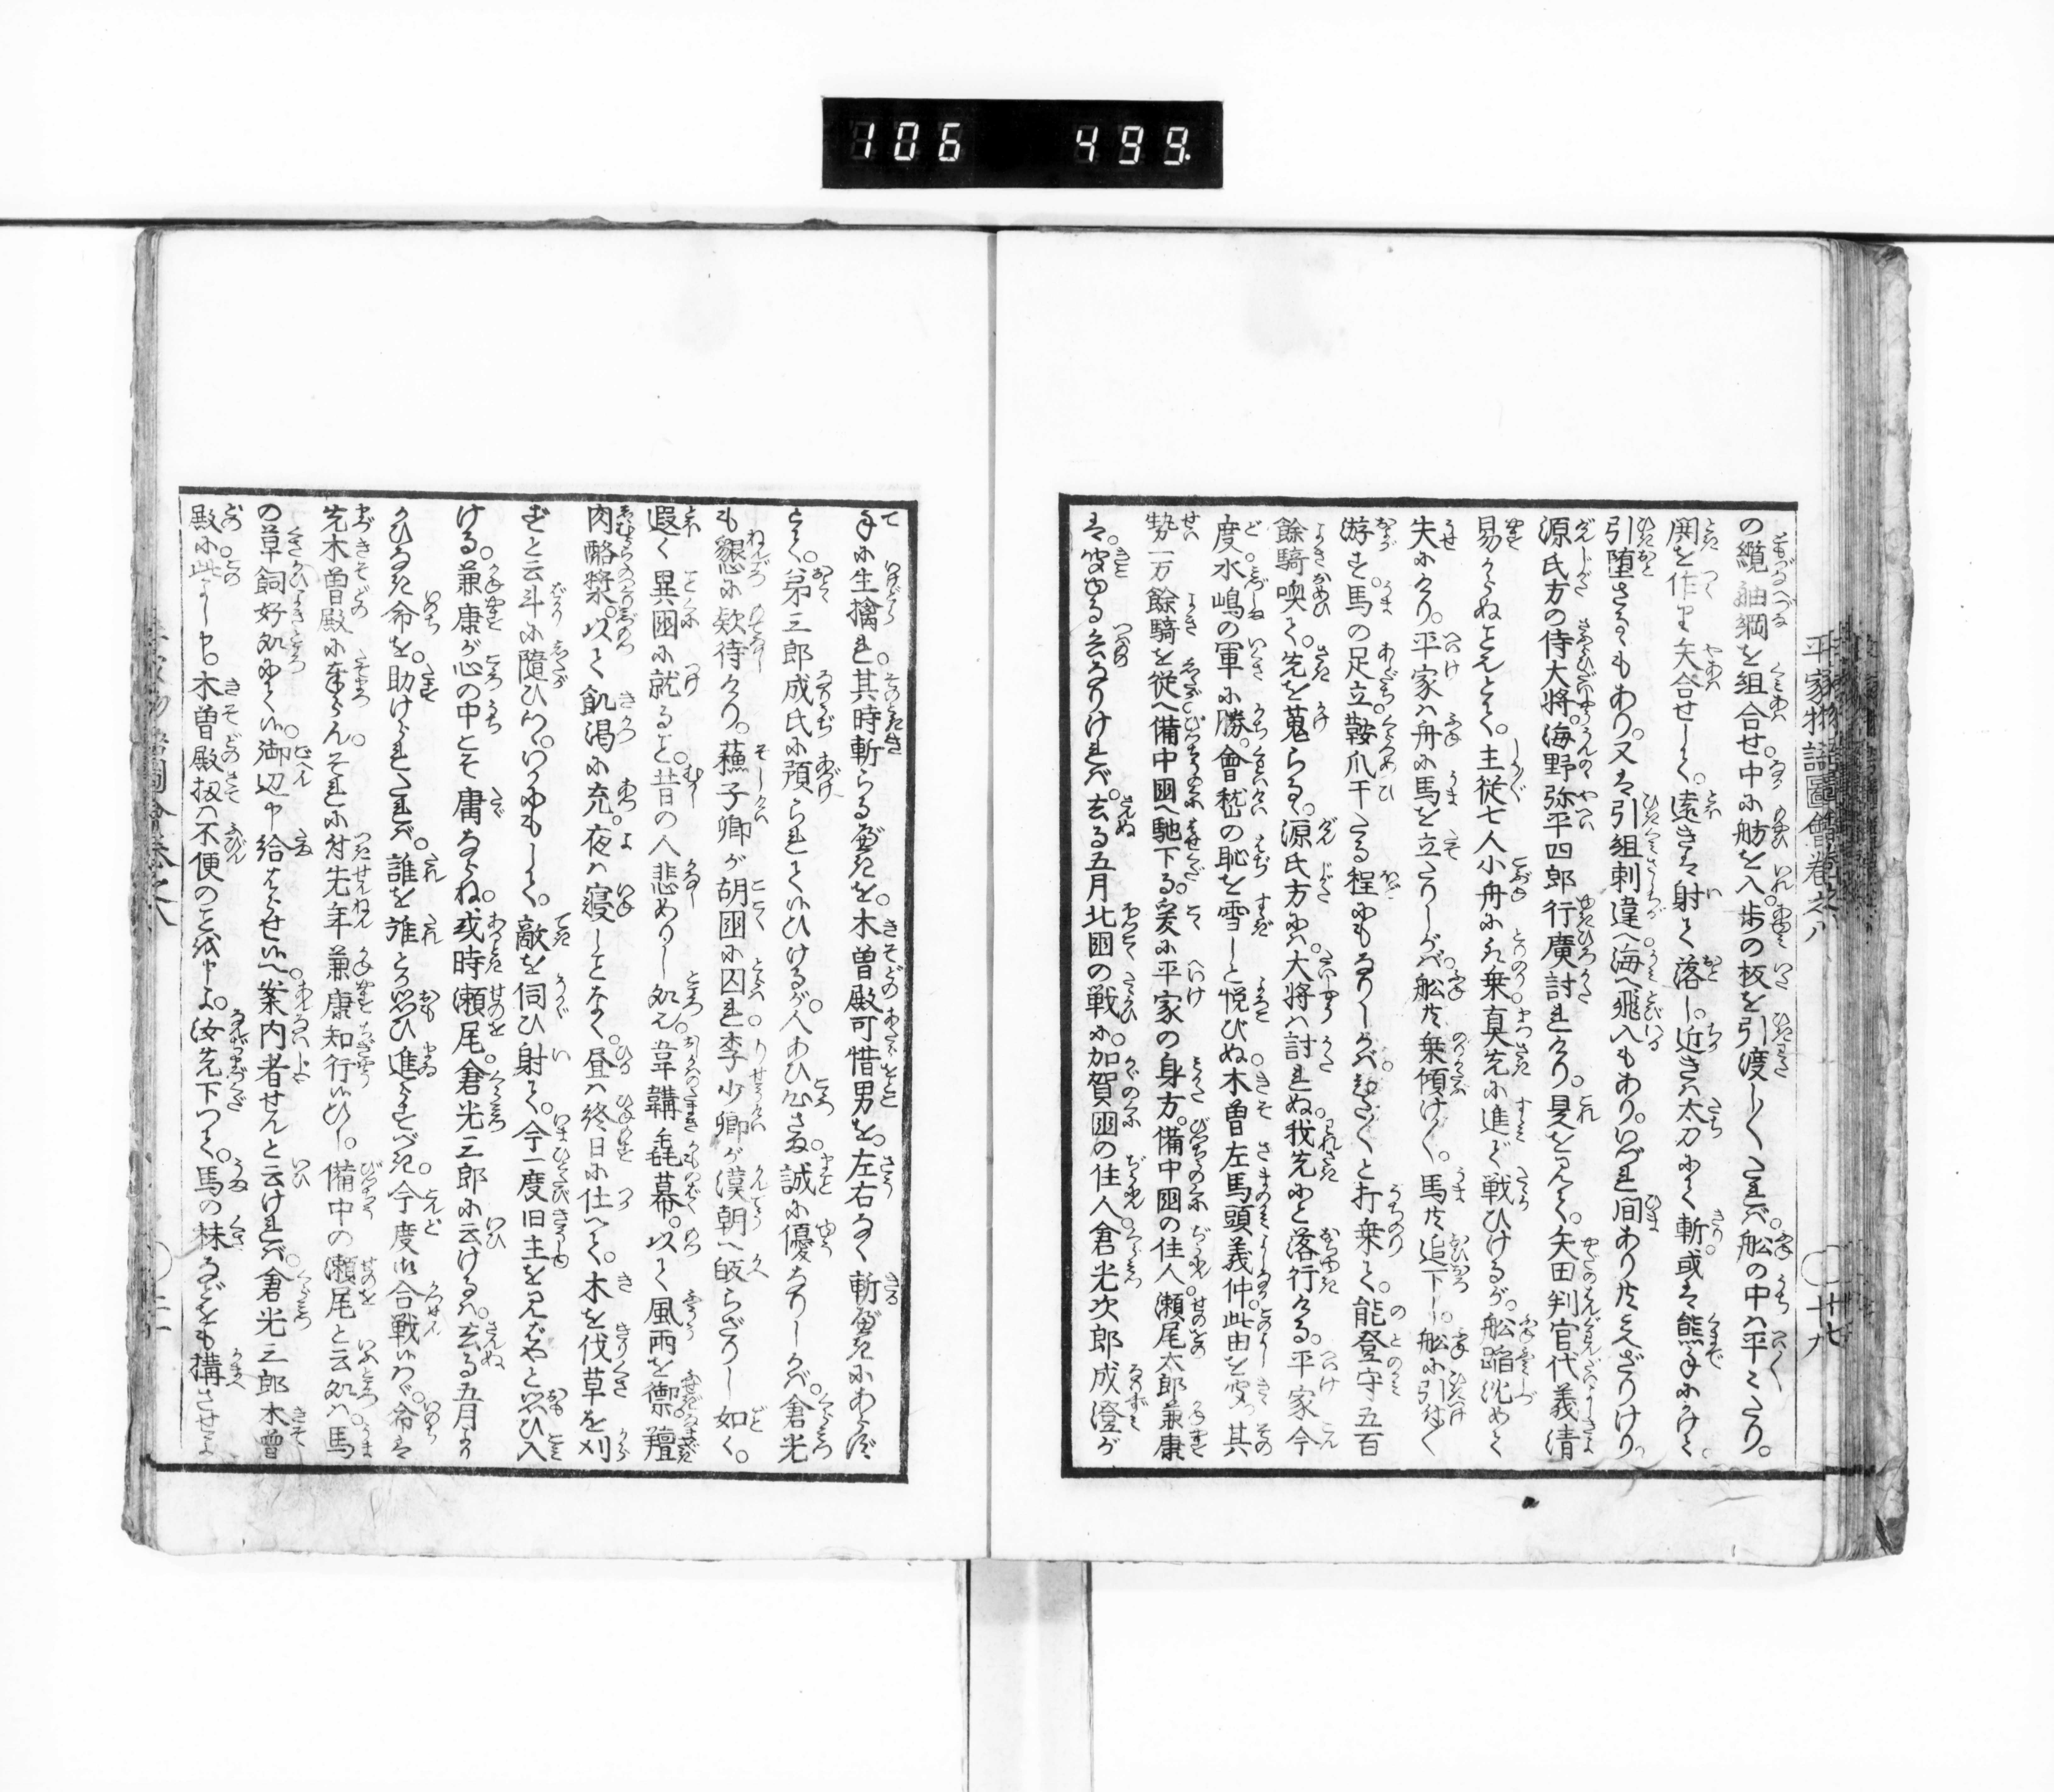 106 499
平家物語圖會巻之八
十九
の纜舳綱を組合せ中に舫を入。歩の板を引渡しくたれバ。舩の中ハ平々たり。
鬨を作り矢合せして。遠きは射て落し。近きハ太刀にて斬。或は熊手にかけて
引堕さるゝもあり。又は引組刺違へ海へ飛入もあり。いづれ間ありともみえざりけり。
源氏方の侍大将。海野弥平四郎行廣討れけり。是を見て。矢田判官代義清
易からぬことゝて。主従七人小舟に取乗真先に進ど戦ひけるが。舩踏沈めて
失にけり。平家ハ舟に馬を立たりしかバ。舩共乗傾けく。馬共追下し。舩に引付く
游す。馬の足立鞍爪干たる程にもなりしかバ。起ひたひたと打乗て。能登守五百
餘騎喚て。先を蒐らる。源氏方にハ。大将ハ討れぬ我先にと落行ける。平家今
度水嶋の軍に勝。會嵆の恥を雪しと悦びぬ。木曽左馬頭義仲。此由を聞。其
勢一万餘騎を従へ備中国へ馳下る。爰に平家の身方。備中国の住人。瀬尾太郎兼康
は。聞ゆる兵なりけれバ。去る五月北国の戦に。加賀国の住人。倉光次郎成澄が
手に生擒れ。其時斬らるべきを。木曽殿可惜男を。左右なく斬べきにあらず
とて。弟三郎成氏に預られていひけるが。人あひ心さま。誠に優なりしかバ。倉光
も懇に款待けり。蘓子卿が胡国に囚れ。李少卿が漢朝へ皈らざりし如く。
遐く異国に就ること。昔の人悲めりし処也。韋韝毳幕。以て風雨を禦。羶
肉酪漿。以て飢渇に充。夜ハ寝ことなく。昼ハ終日に仕へて。木を伐草を刈
ずと云斗に隨ひつゝ。いかにもして。敵を伺ひ射て。今一度旧主を見ばやと思ひ入
ける。兼康が心の中こそ庸ならね。或時瀬尾。倉光三郎に云けるハ。去る五月より
かひなき命を。助けられたれバ。誰を誰とか思ひ進らすべき。今度御合戦いはゞ。命は
先木曽殿に奉らん。それに付先年兼康知行いひし。備中の瀬尾と云処ハ。馬
の草飼好処にてい。御辺申給はらせいへ案内者せんと云けれバ。倉光三郎木曽
殿に此よし申。木曽殿扨ハ不便のことを申よ。汝先下つて。馬の秣などをも構させよ